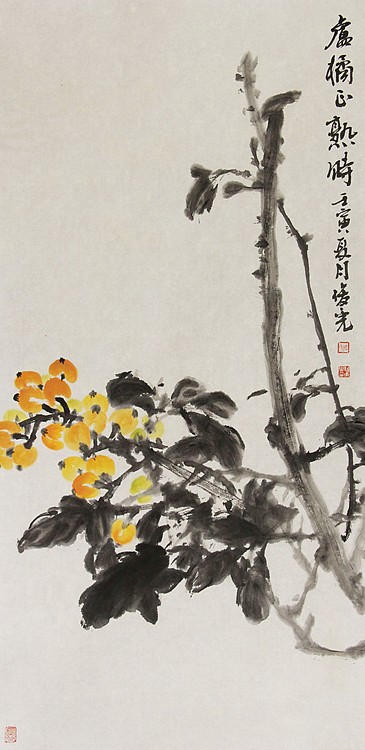 盧橘正熟時壬寅夏月